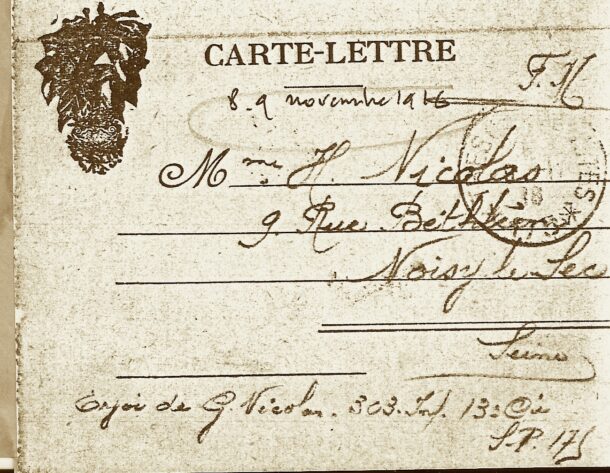 CARTE-LETTRE
F. M
8.9 novembre 1916
Mme H. Nicolas
9. Rue Béthléem
Noisy le Sec
Seine
Envoi de G. Nicolas. 303. Inf. 13e Cie
S.P. 175